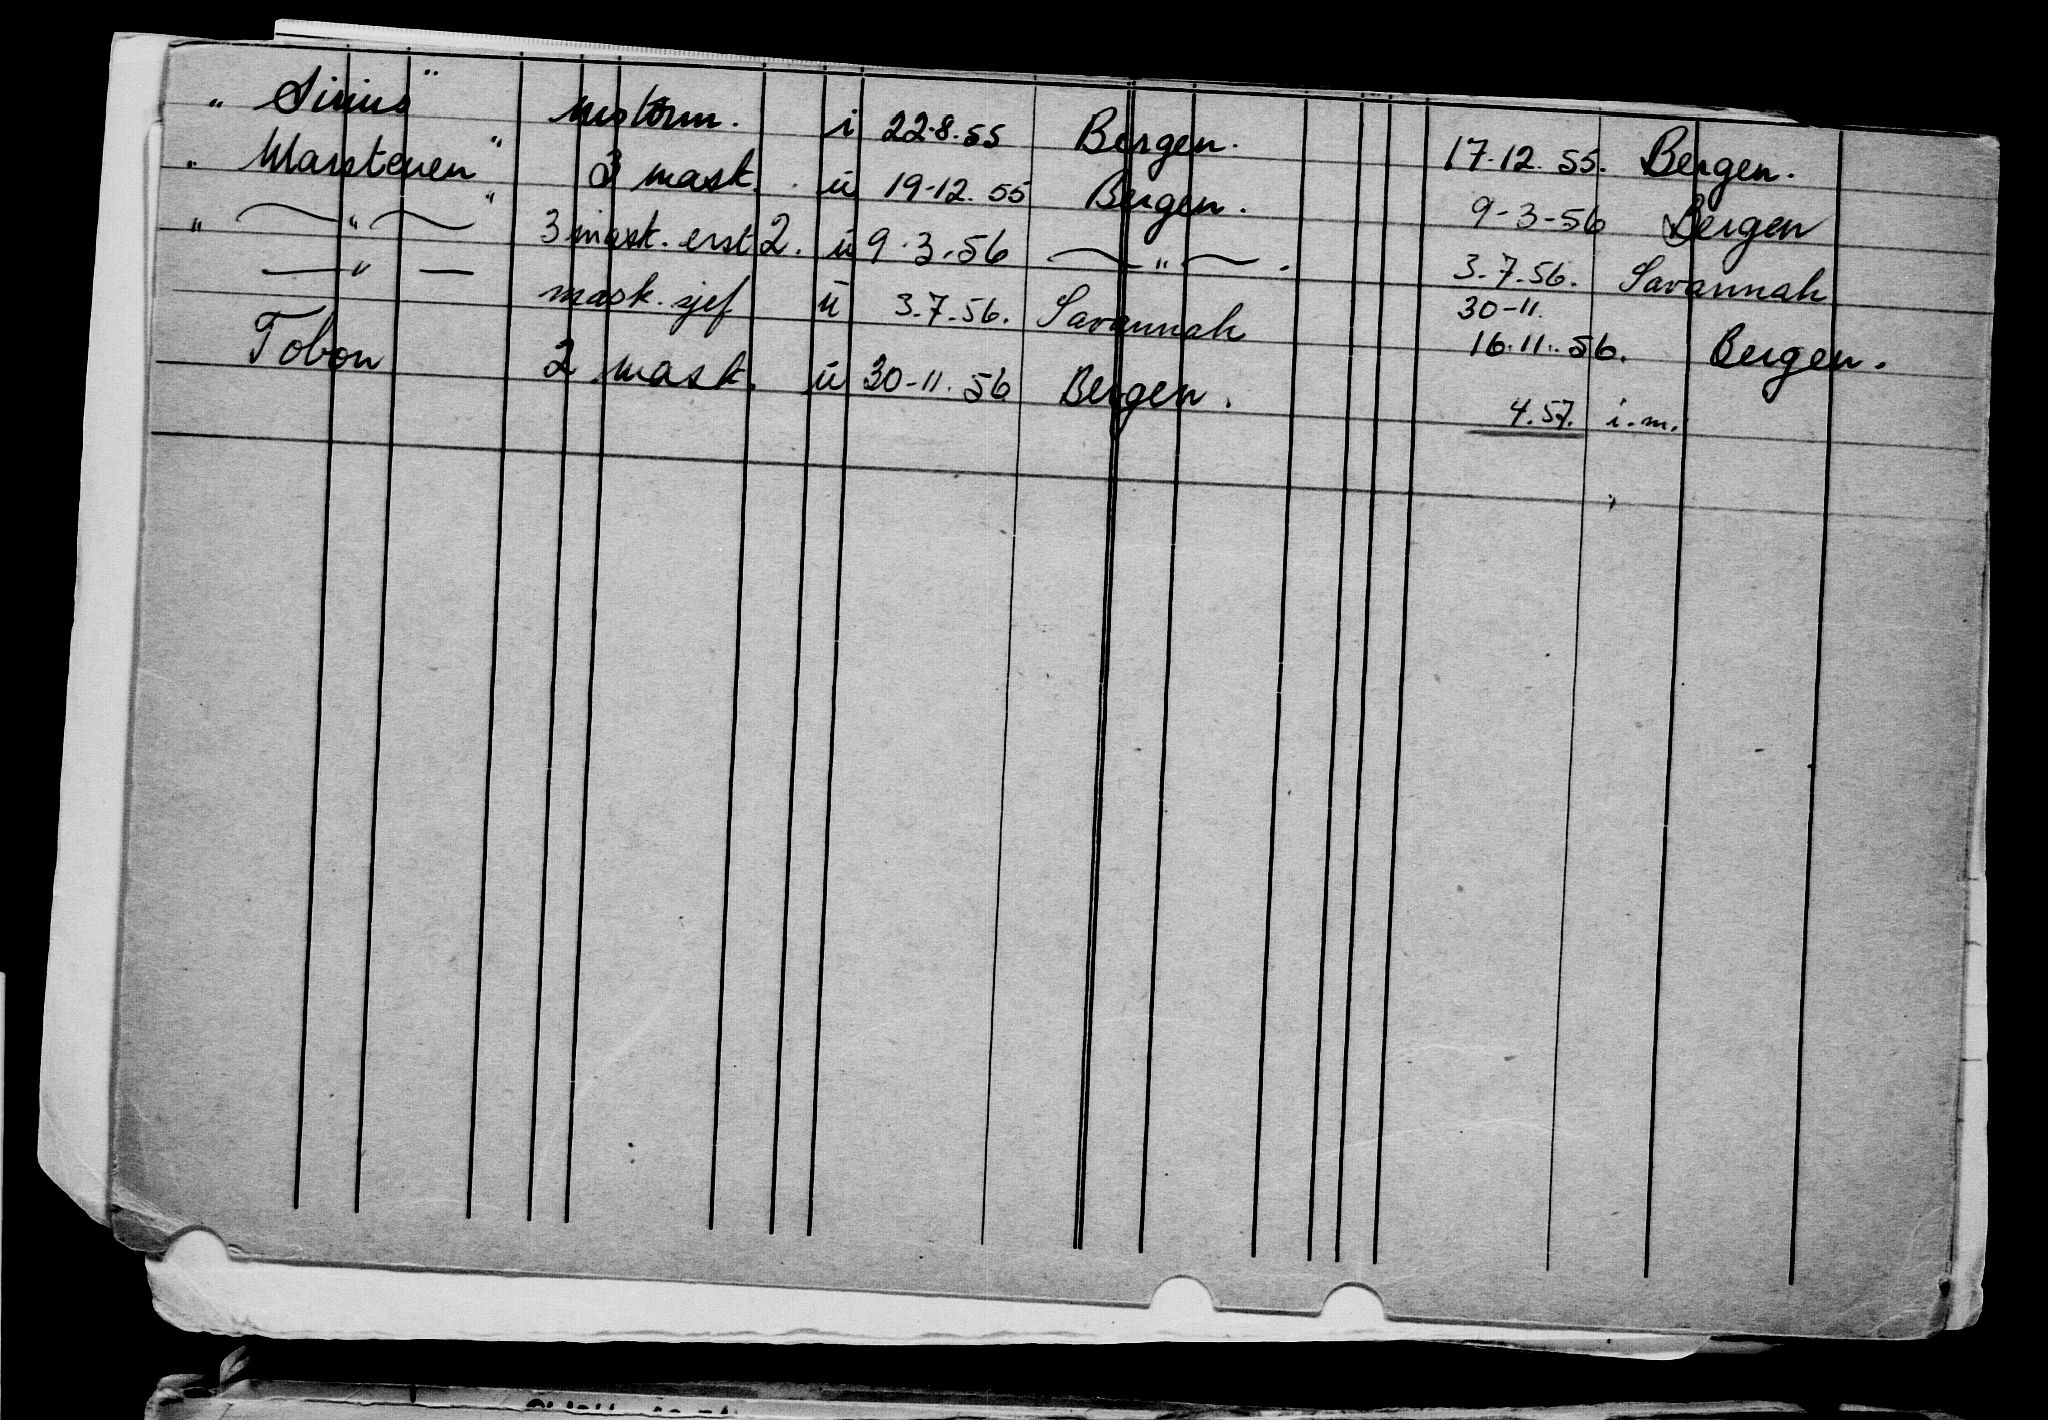 " Sirius " motorm. i 22-8-55 Bergen. 17-12. 55. Bergen.
" Marstenen " 3 mask. u 19-12. 55 Bergen. 9-3-56 Bergen
" — " — " 3 mask. erst 2. u 9.3.56 — " — . 3.7.56. Savannah
— " — mask. sjef u 3.7.56. Savannah 30-11. 16.11.56. Bergen.
Tobon 2 mask. u 30-11.56 Bergen. 4.57. i.m.